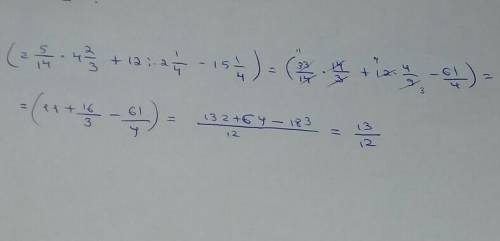 (2 5/14 · 4 2/3 + 12 : 2 1/4 − 15 1/4) = (33/14 · 14/3 + 12 · 4/9 − 61/4) =
= (11 + 16/3 − 61/4) = (132 + 64 − 183)/12 = 13/12